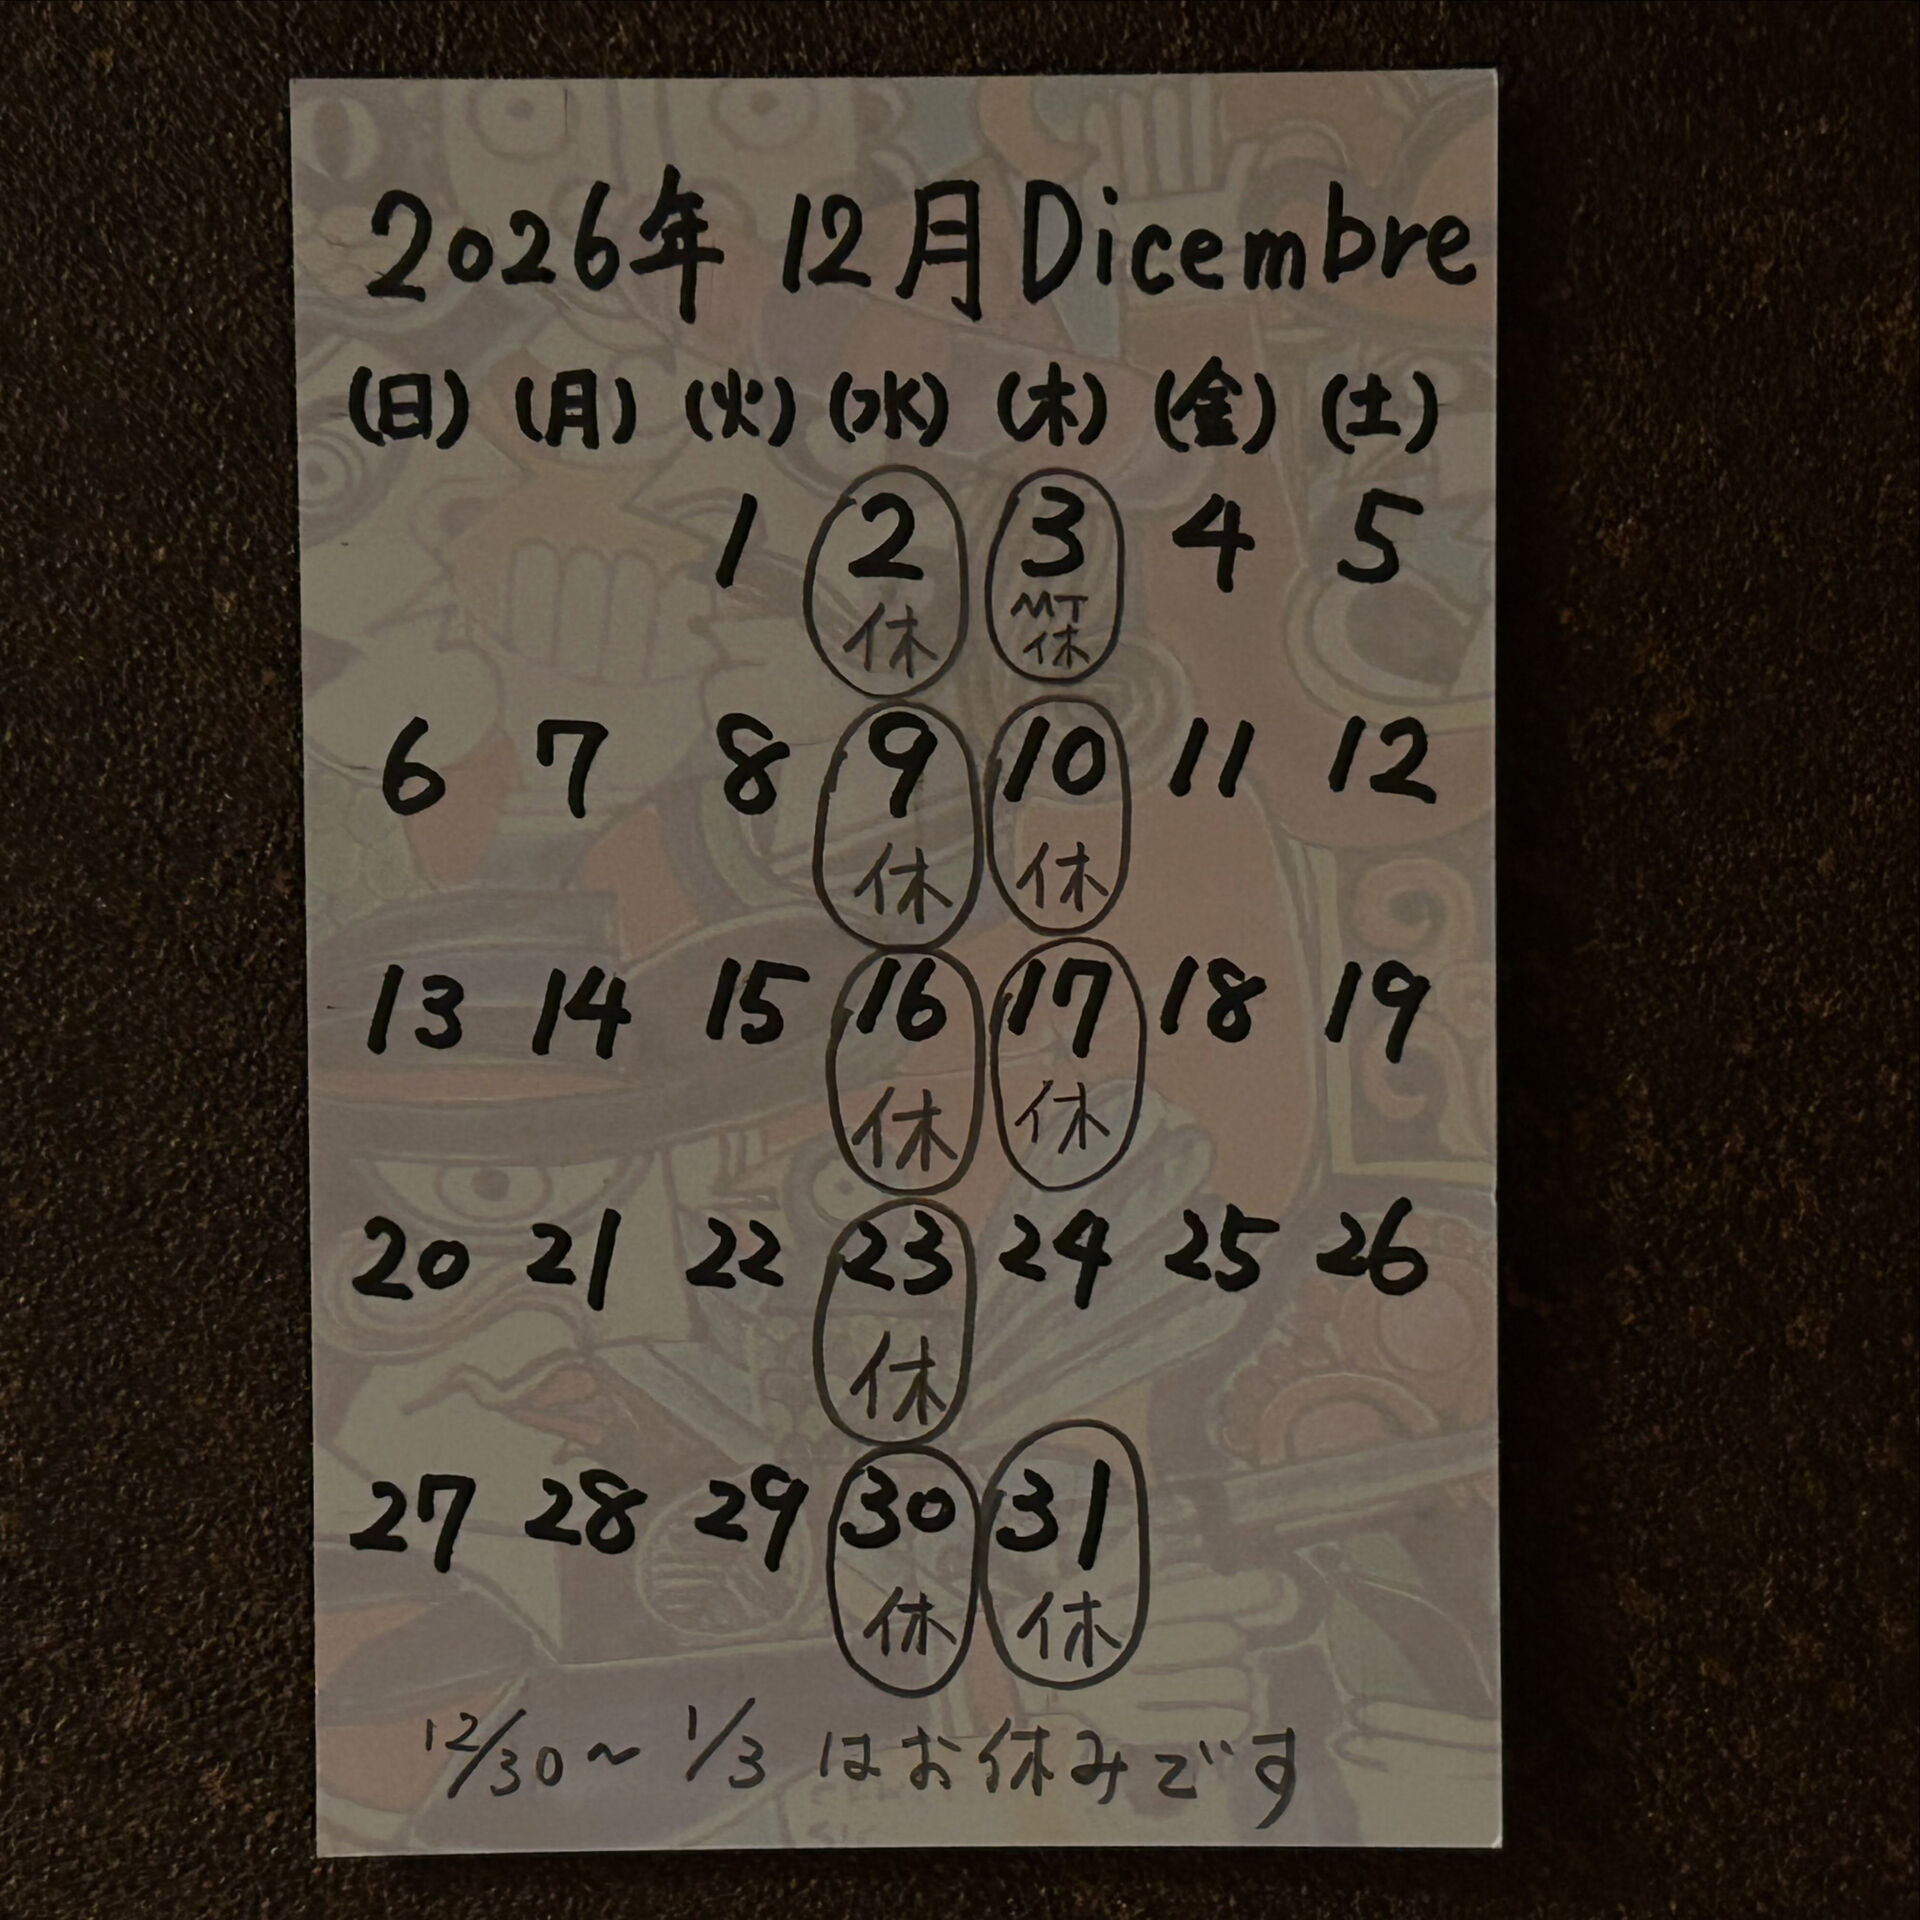 2026年 12月 Dicembre
(日) (月) (火) (水) (木) (金) (土)
1 2 3 4 5
休 MT
休
6 7 8 9 10 11 12
休 休
13 14 15 16 17 18 19
休 休
20 21 22 23 24 25 26
休
27 28 29 30 31
休 休
12/30～1/3 はお休みです